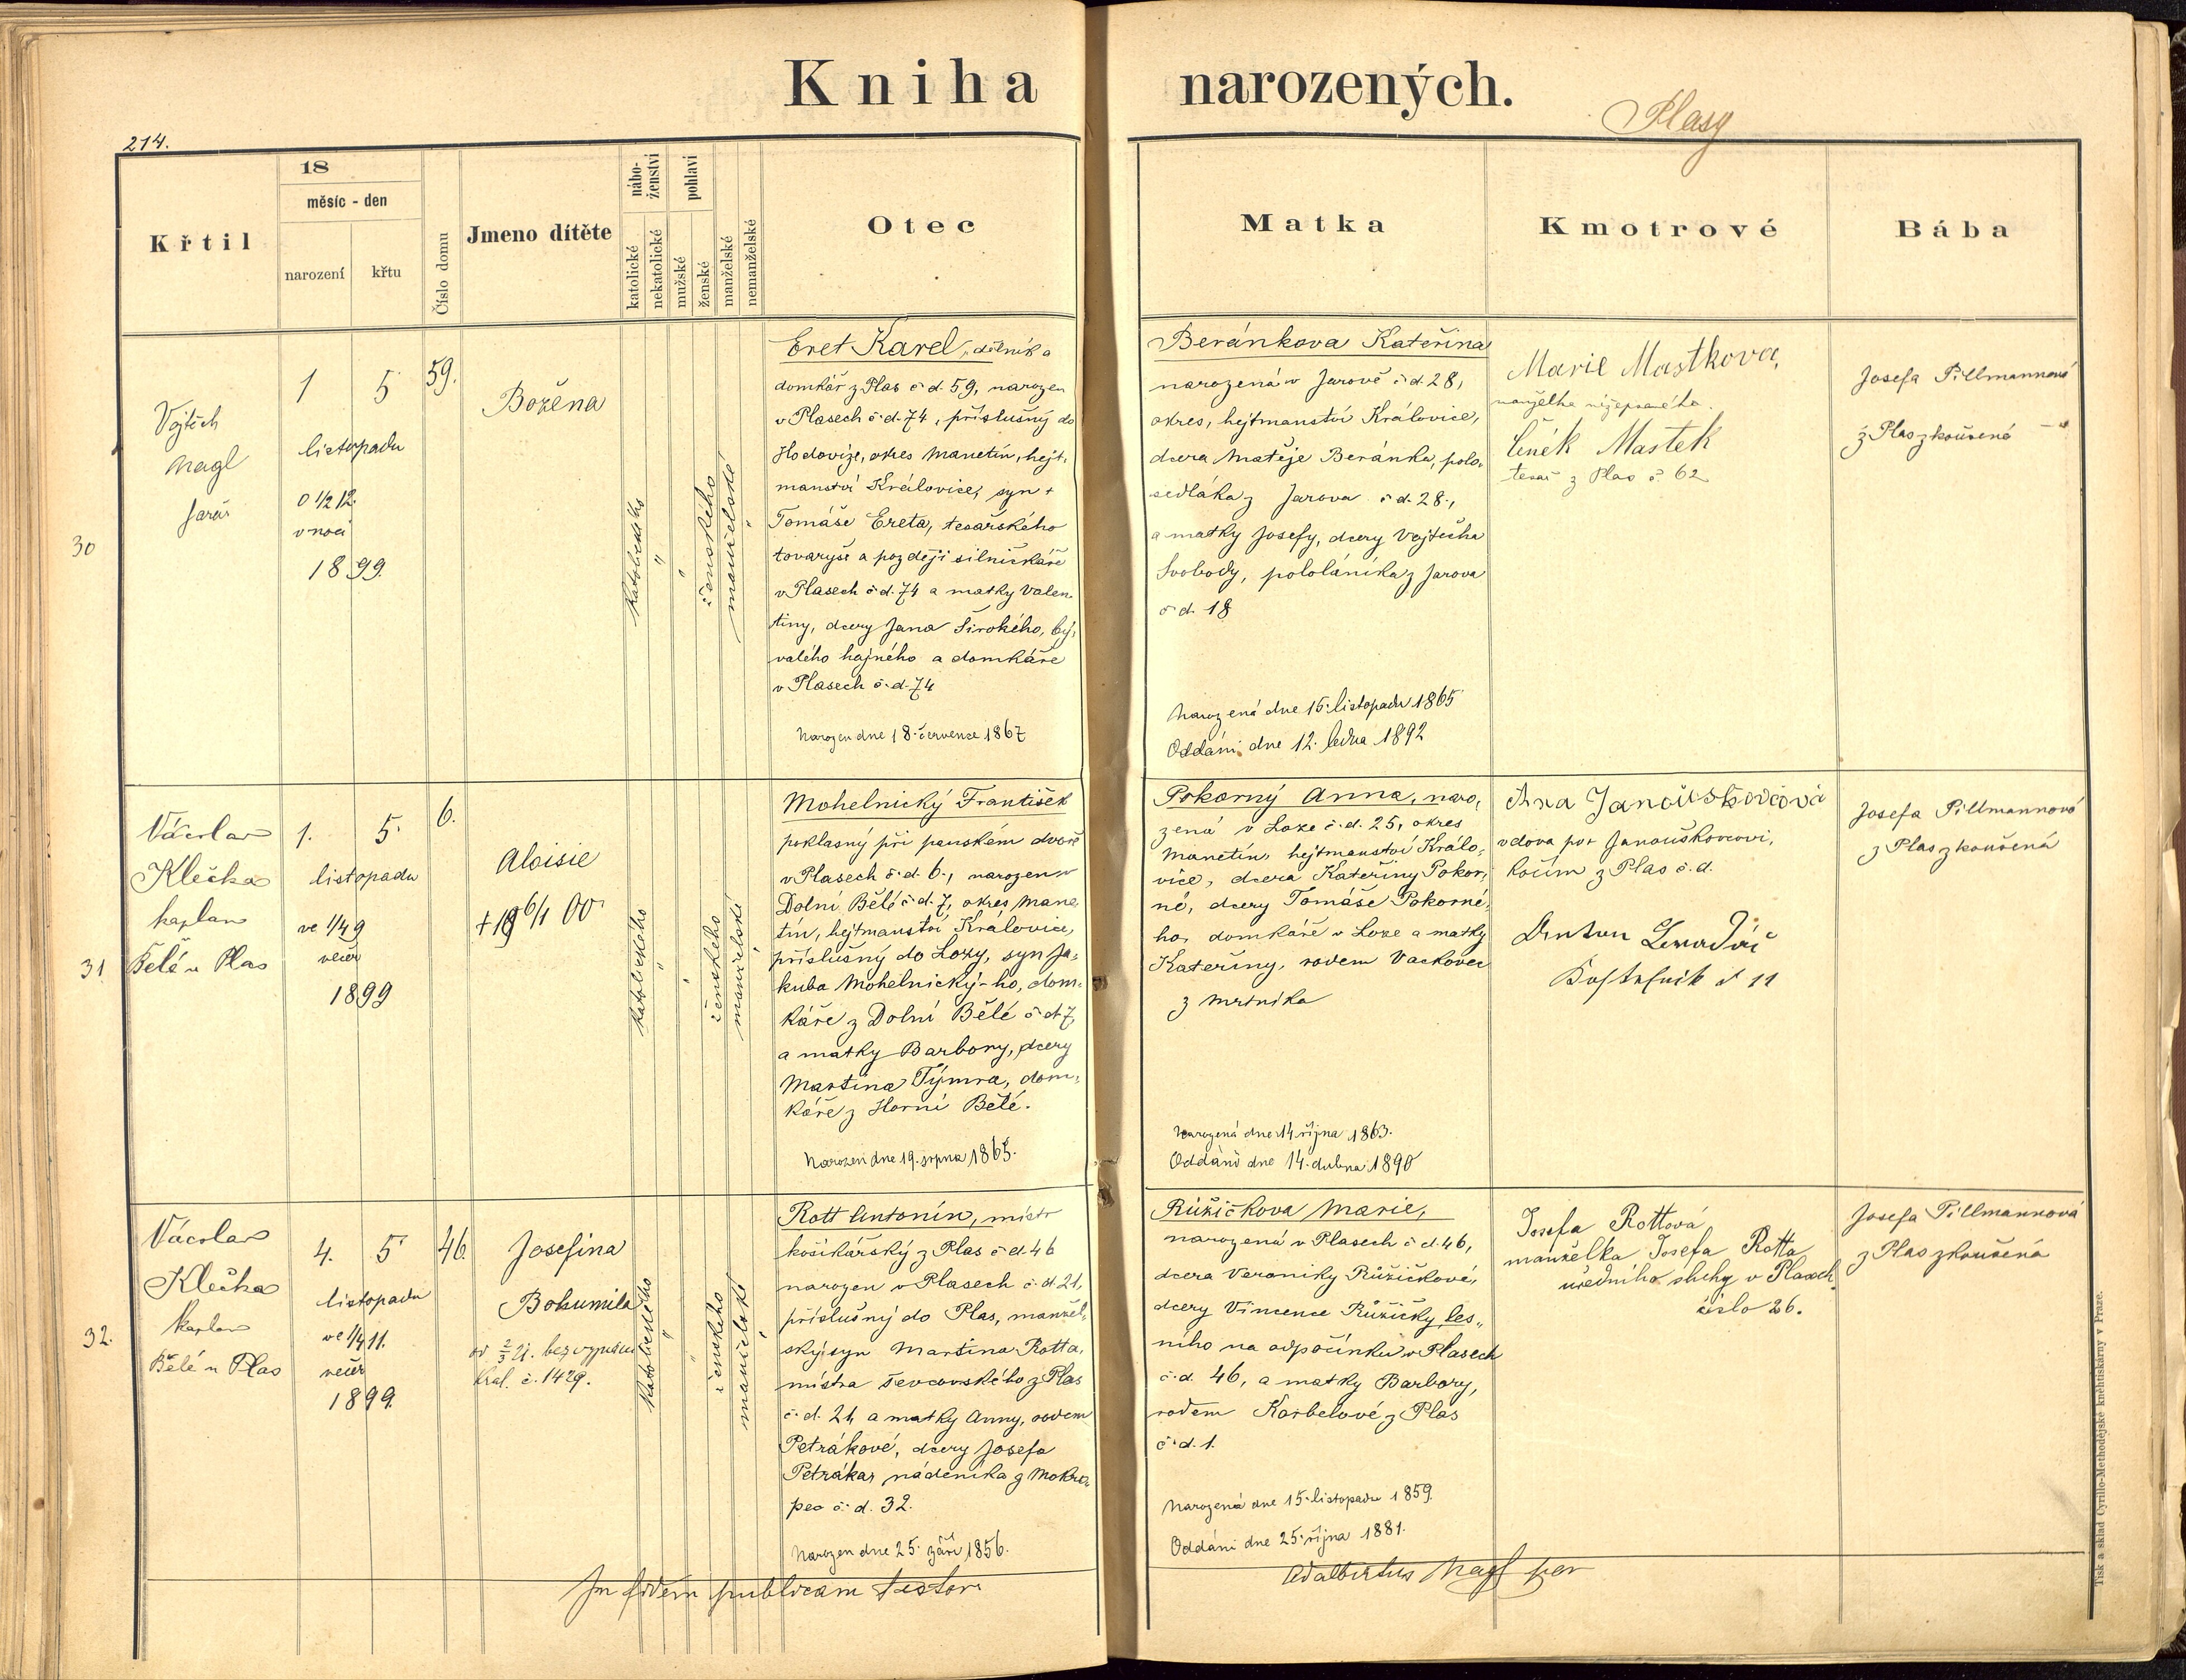 Kniha narozených.
Plasy
214.
Křtil
18
měsíc - den
narození
křtu
Číslo domu
Jmeno dítěte
nábo-
ženství
katolické
nekatolické
pohlaví
mužské
ženské
manželské
nemanželské
Otec
Matka
Kmotrové
Bába
30
Vojtěch
Nagl
farář
1 5
listopadu
o 1/2 12.
v noci
1899.
59.
Božena
katolického
"
"
ženského
manželské
"
Eret Karel, dělník a
domkář z Plas č. d. 59, narozen
v Plasech č. d. 74, příslušný do
Hodovize, okres Manetín, hejt.
manství Královice, syn +
Tomáše Ereta, tesařského
tovaryše a později silničkáře
v Plasech č. d. 74 a matky Valen.
tiny, dcery Jana Širokého, bý,
valého hajného a domkáře
v Plasech č. d. 74
Narozen dne 18. července 1867
Beránkova Kateřina
narozená v Jarově č. d. 28,
okres, hejtmanství Královice,
dcera Matěje Beránka, polo,
sedláka z Jarova č. d. 28.,
a matky Josefy, dcery Vojtěcha
Svobody, pololáníka z Jarova
č. d. 18
Narozená dne 16. listopadu 1865
Oddáni dne 12. ledna 1892
Marie Mastkova,
manželka nížepsaného.
Čeněk Mastek
tesař z Plas č. 62
Josefa Pillmannová
z Plas zkoušená
31
Václav
Klečka
kaplan
Bělé u Plas
1. 5.
listopadu
ve 1/4 9
večer
1899
6.
Aloisie
+ 6/1 00
katolického
"
"
ženského
manželské
"
Mohelnický František
poklasný při panském dvoře
v Plasech č. d. 6., narozen v
Dolní Bělé č. d. 7, okres Mane
tín, hejtmanství Královice,
příslušný do Lozy, syn Ja-
kuba Mohelnický-ho, dom.
káře z Dolní Bělé č. d. 7,
a matky Barbory, dcery
Martina Týmra, dom,
káře z Horní Bělé.
Narozen dne 19. srpna 1865.
Pokorný Anna, naro,
zená v Loze č. d. 25, okres
Manetín, hejtmanství Králo,
vice, dcera Kateřiny Pokor,
né, dcery Tomáše Pokorné,
ho, domkáře v Loze a matky
Kateřiny, rodem Vackovec
z Mrtníka
Narozená dne 14. října 1863.
Oddáni dne 14. dubna 1890
Ana Janouškovcová
vdova po + Janouškovcovi,
z Plas č. d.
Anton
č 11
Josefa Pillmannová
z Plas zkoušená
32.
Václav
Klečka
kaplan
Bělé u Plas
4. 5.
listopadu
ve 1/4 11.
večer
1899.
46.
Josefina
Bohumila
bez vyznání
Kral. č. 1429.
katolického
"
"
ženského
manželské
"
Rott Antonín, mistr
košíkářský z Plas č. d. 46
narozen v Plasech č. d. 21,
příslušný do Plas, manžel,
ský syn Martina Rotta,
mistra ševcovského z Plas
č. d. 21, a matky Anny, rodem
Petrákové, dcery Josefa
Petráka, nádeníka z Mokro,
pec č. d. 32.
Narozen dne 25. září 1856.
Růžičkova Marie,
narozená v Plasech č. d. 46,
dcera Veroniky Růžičkové,
dcery Vincence Růžičky, les,,
ního na odpočinku v Plasech
č. d. 46, a matky Barbory,
rodem Korbelové z Plas
č. d. 1.
Narozená dne 15. listopadu 1859.
Oddáni dne 25. října 1881.
Josefa Rottová
manželka Josefa Rotta
uředního sluhy v Plasech
číslo 26.
Josefa Pillmannová
z Plas zkoušená
In fidem publicam testor
Adalbertus Nagl
Tisk a sklad Cyrillo-Methodějské kněhtiskárny v Praze.